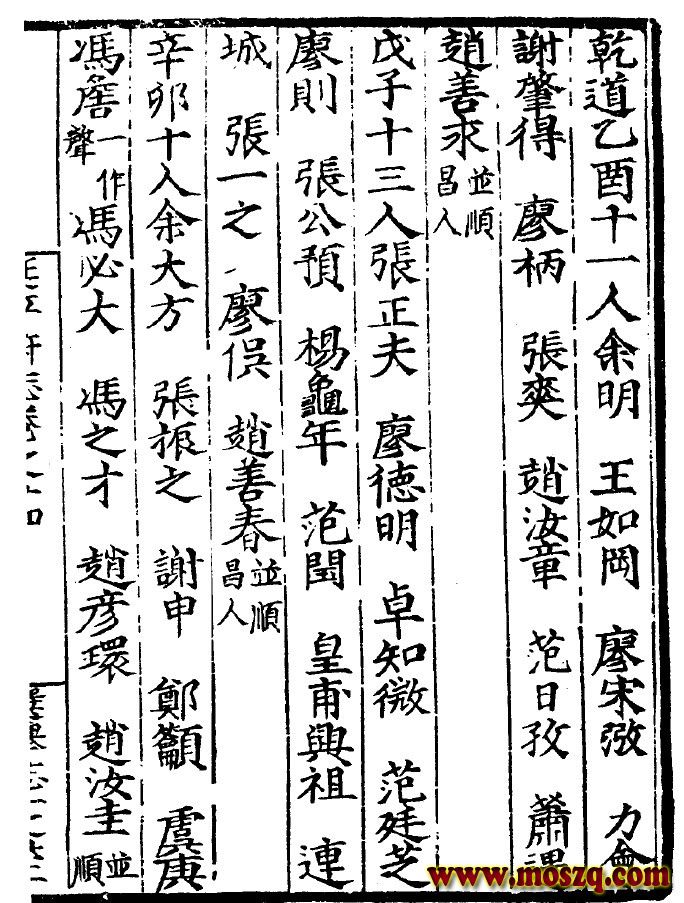 乾道乙酉十一人余明 王如岡 廖宋弼
謝肇得 廖柄 張奭 趙汝章 范日孜 蕭
趙善求並順昌人
戊子十三人張正夫 廖德明 卓知微 范廷芝
廖則 張公預 楊龜年 范閏 皇甫興祖 連
城 張一之 廖俁 趙善春並順昌人
辛卯十人余大方 張振之 謝申 鄭籲 虞庚
馮詹一作聲 馮必大 馮之才 趙彥環 趙汝圭並順
www.moszq.com